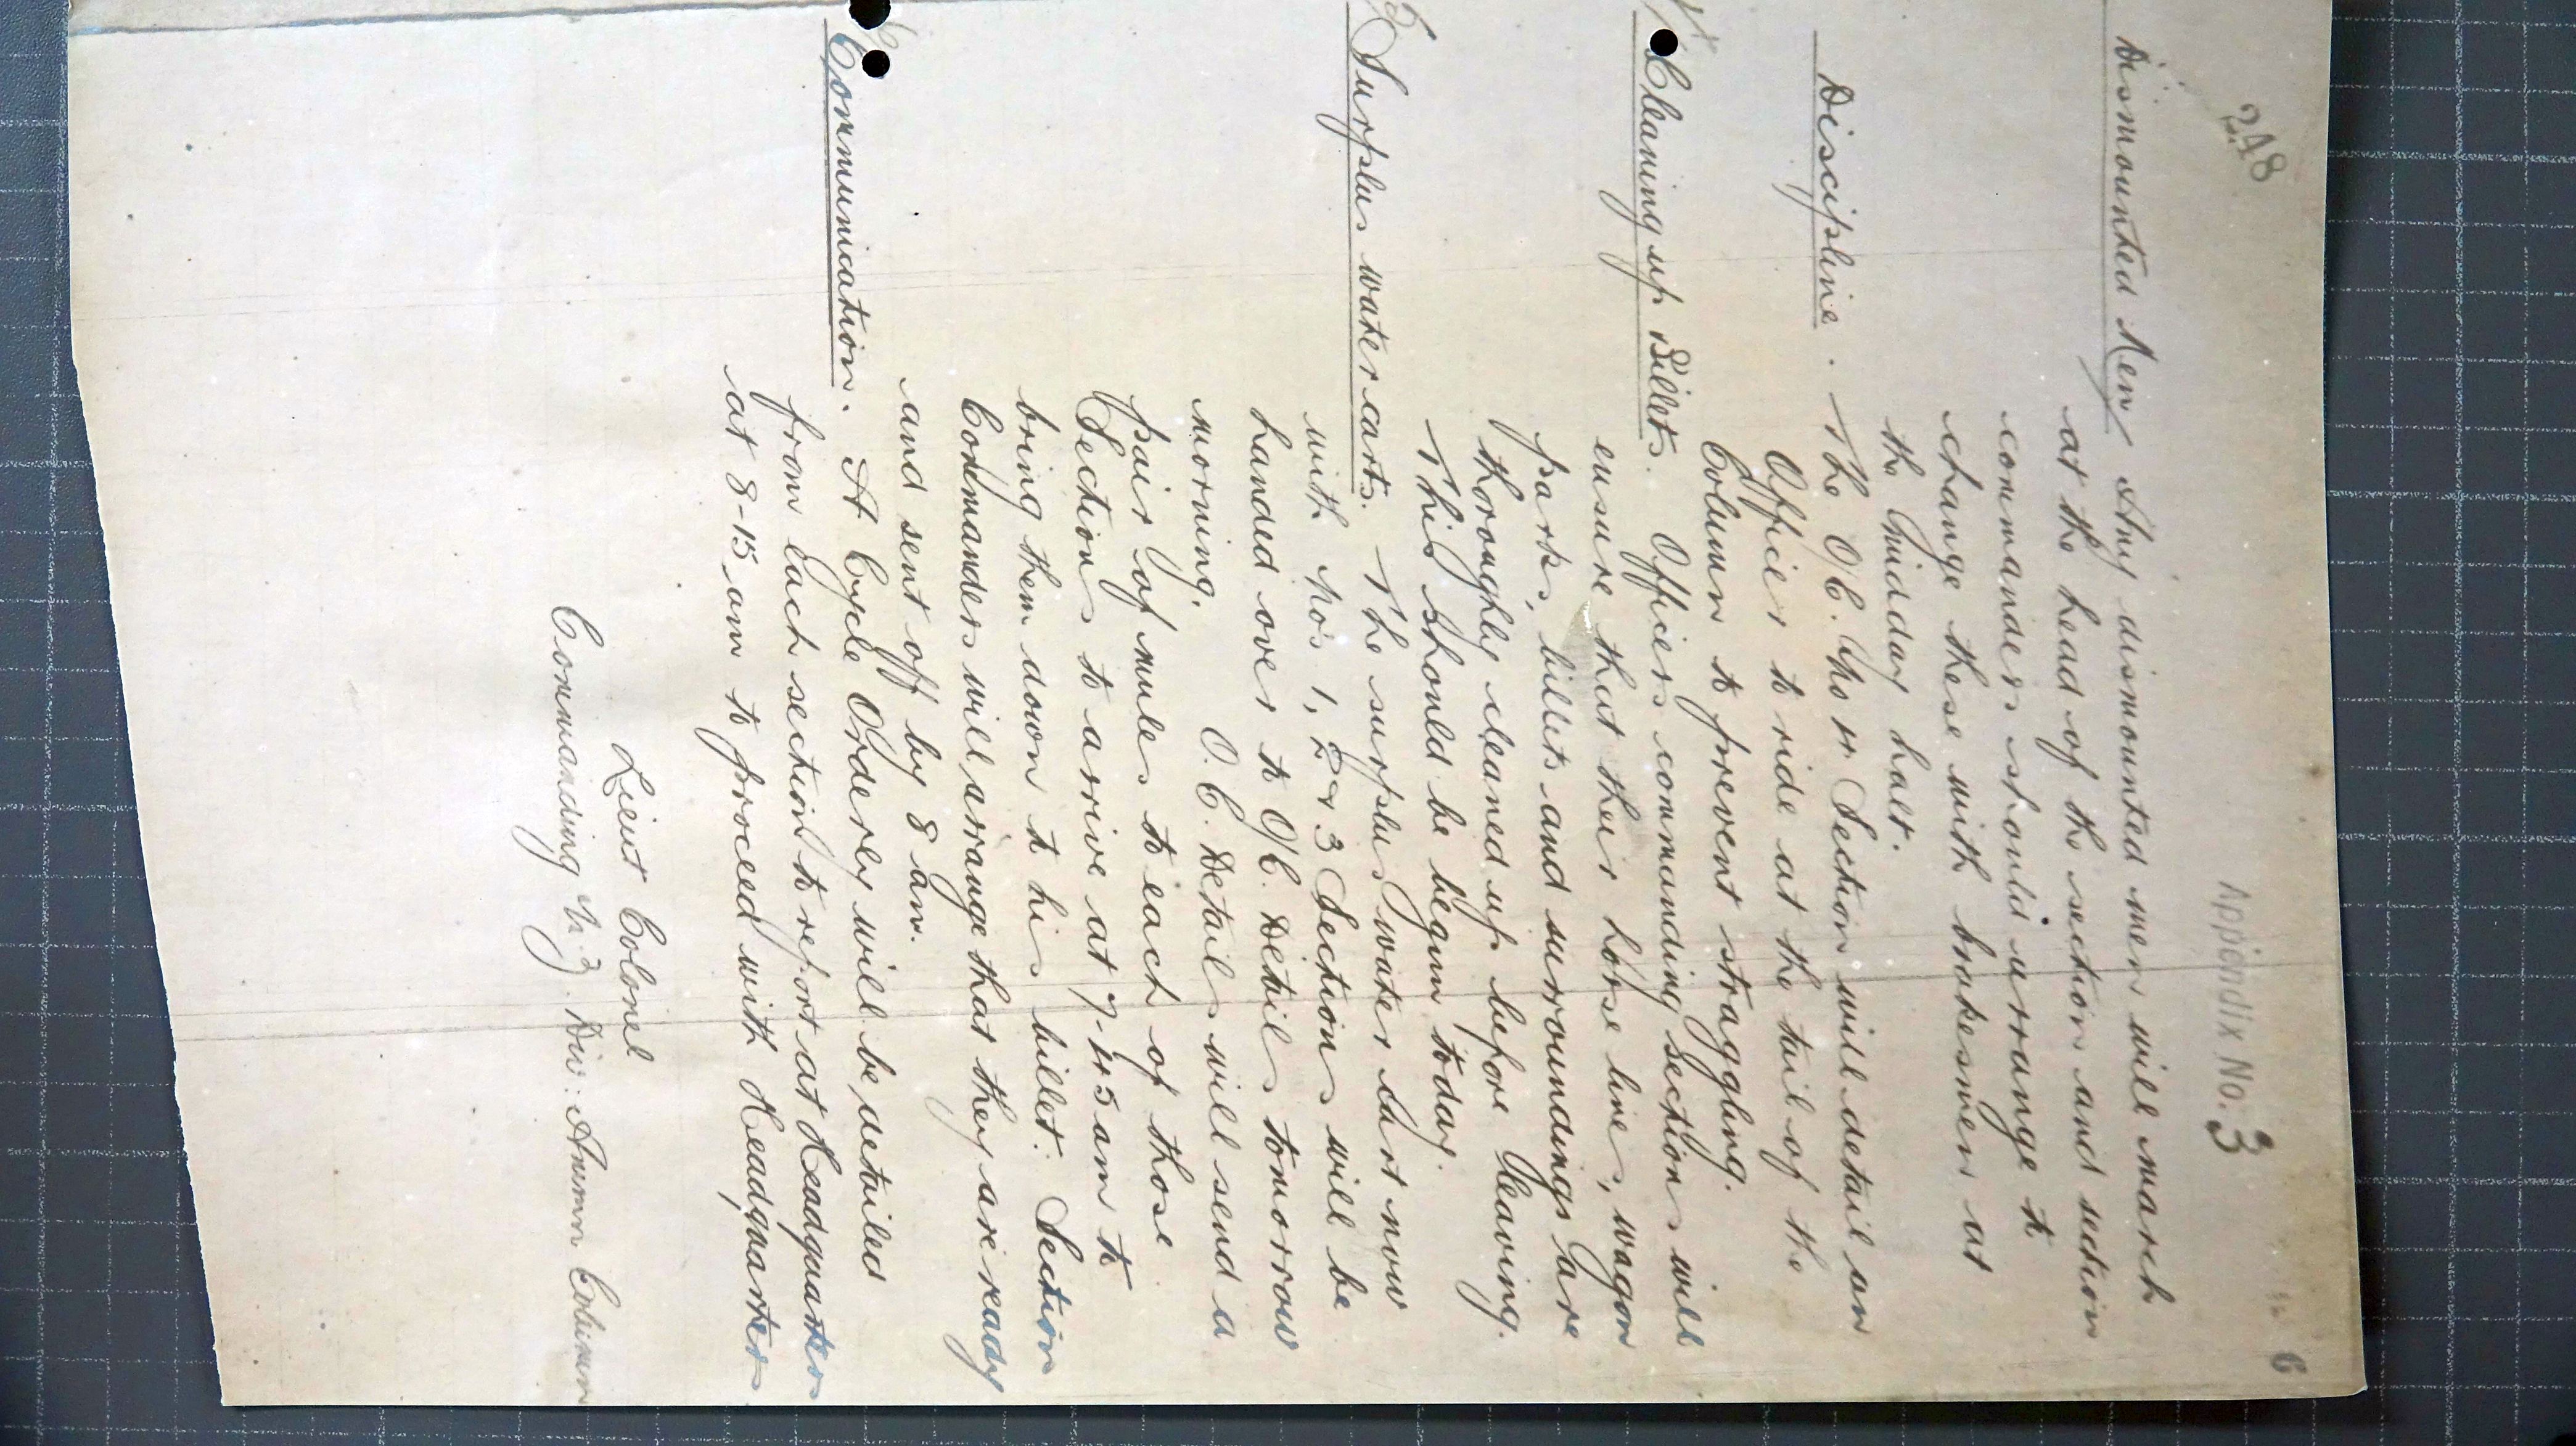 248
6
Appendix No. 3
Dismounted Men Any dismounted men will march
at the head of the section and section
commanders should arrange to
change these with brakesmen at
the midday halt.
Discipline. The O/C. No 4 Section will detail an
Officer to ride at the tail of the
Column to prevent straggling.
Cleaning up Billets. Officers commanding sections will
ensure that their horse lines, wagon
parks, billets and surroundings are
thoroughly cleaned up before leaving.
This should be begun today.
Surplus water carts. The surplus water cart now
with No's 1, 2 & 3 Sections will be
handed over to O/C. Details tomorrow
morning. O.C. Details will send a
pair of mules to each of those
Sections to arrive at 7-45 am to
bring them down to his billet. Section
Commanders will arrange that they are ready
and sent off by 8 am.
Communication. A Cycle Orderly will be detailed
from each section to report at Headquarters
at 8-15 am to proceed with Headquarters
Lieut Colonel
Commanding N.Z. Div: Ammn Column